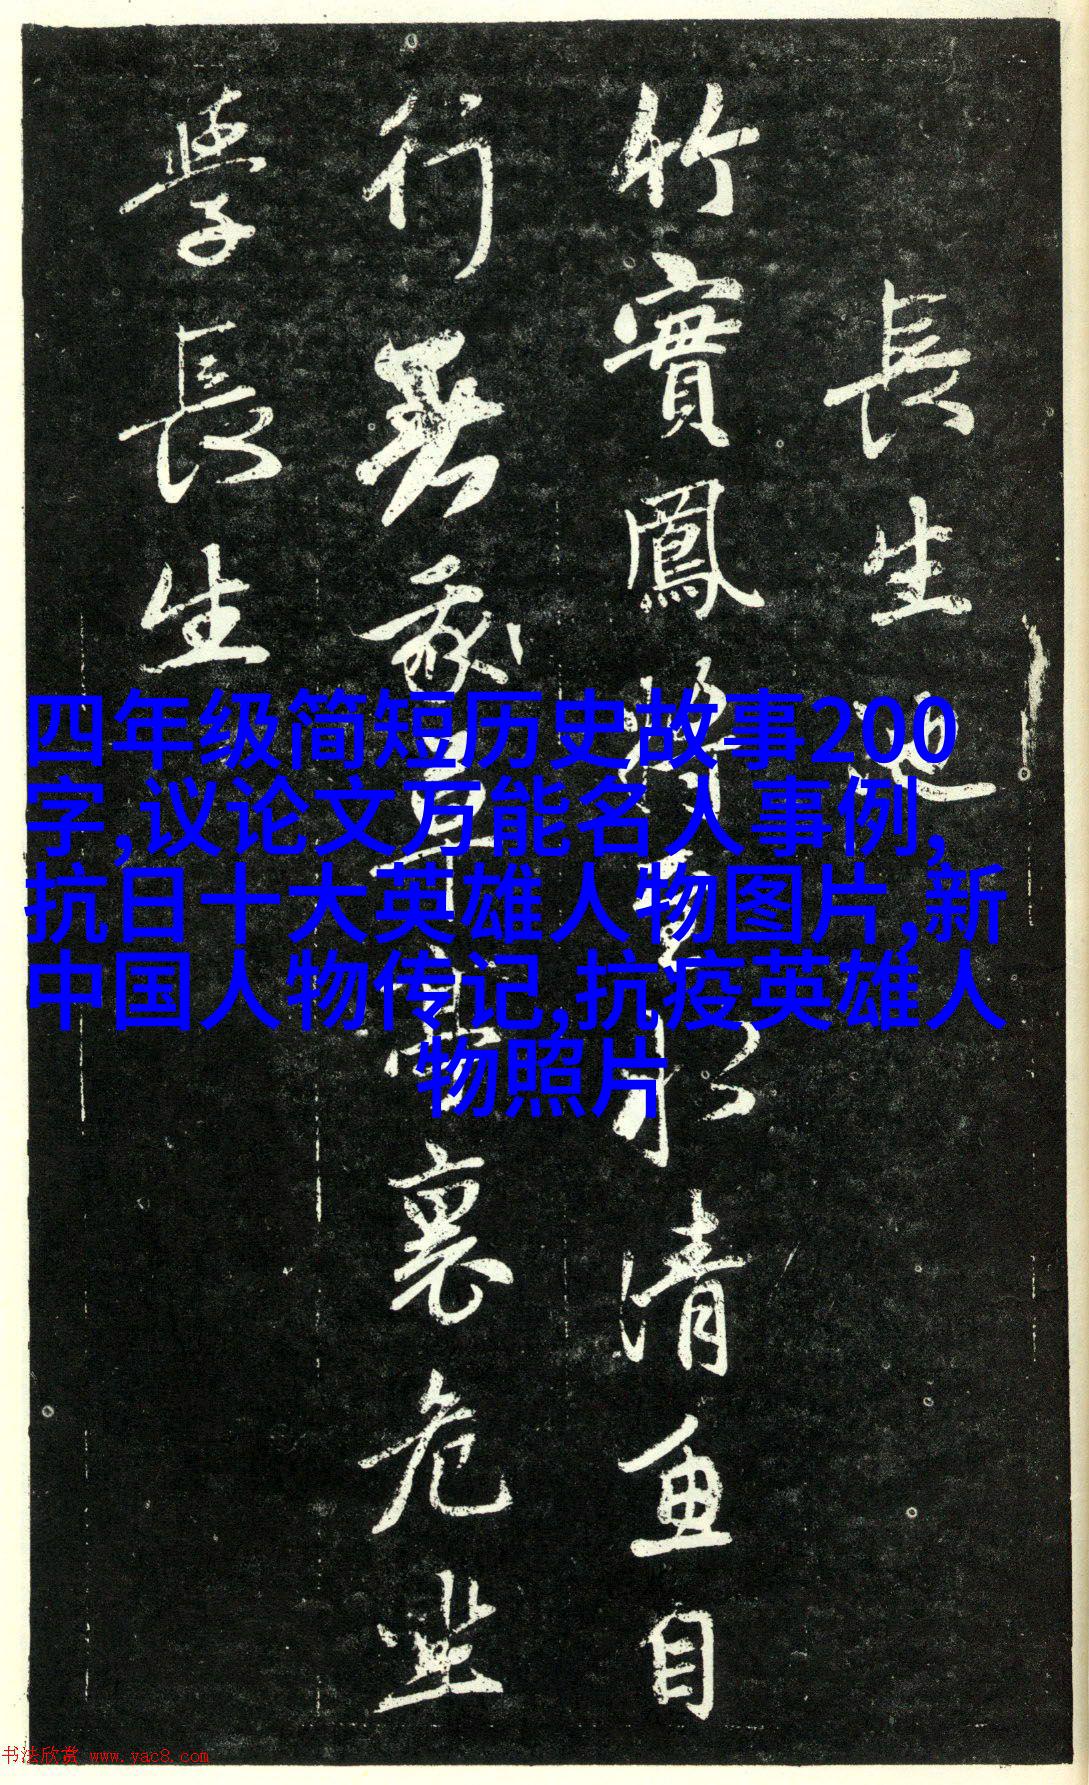 長生池
竹實鳳將至水清魚自
行 家 裏危坐
學長生
四年级简短历史故事200
字,议论文万能名人事例,
抗日十大英雄人物图片,新
中国人物传记,抗疫英雄人
物照片
书法欣赏 www.yac8.com